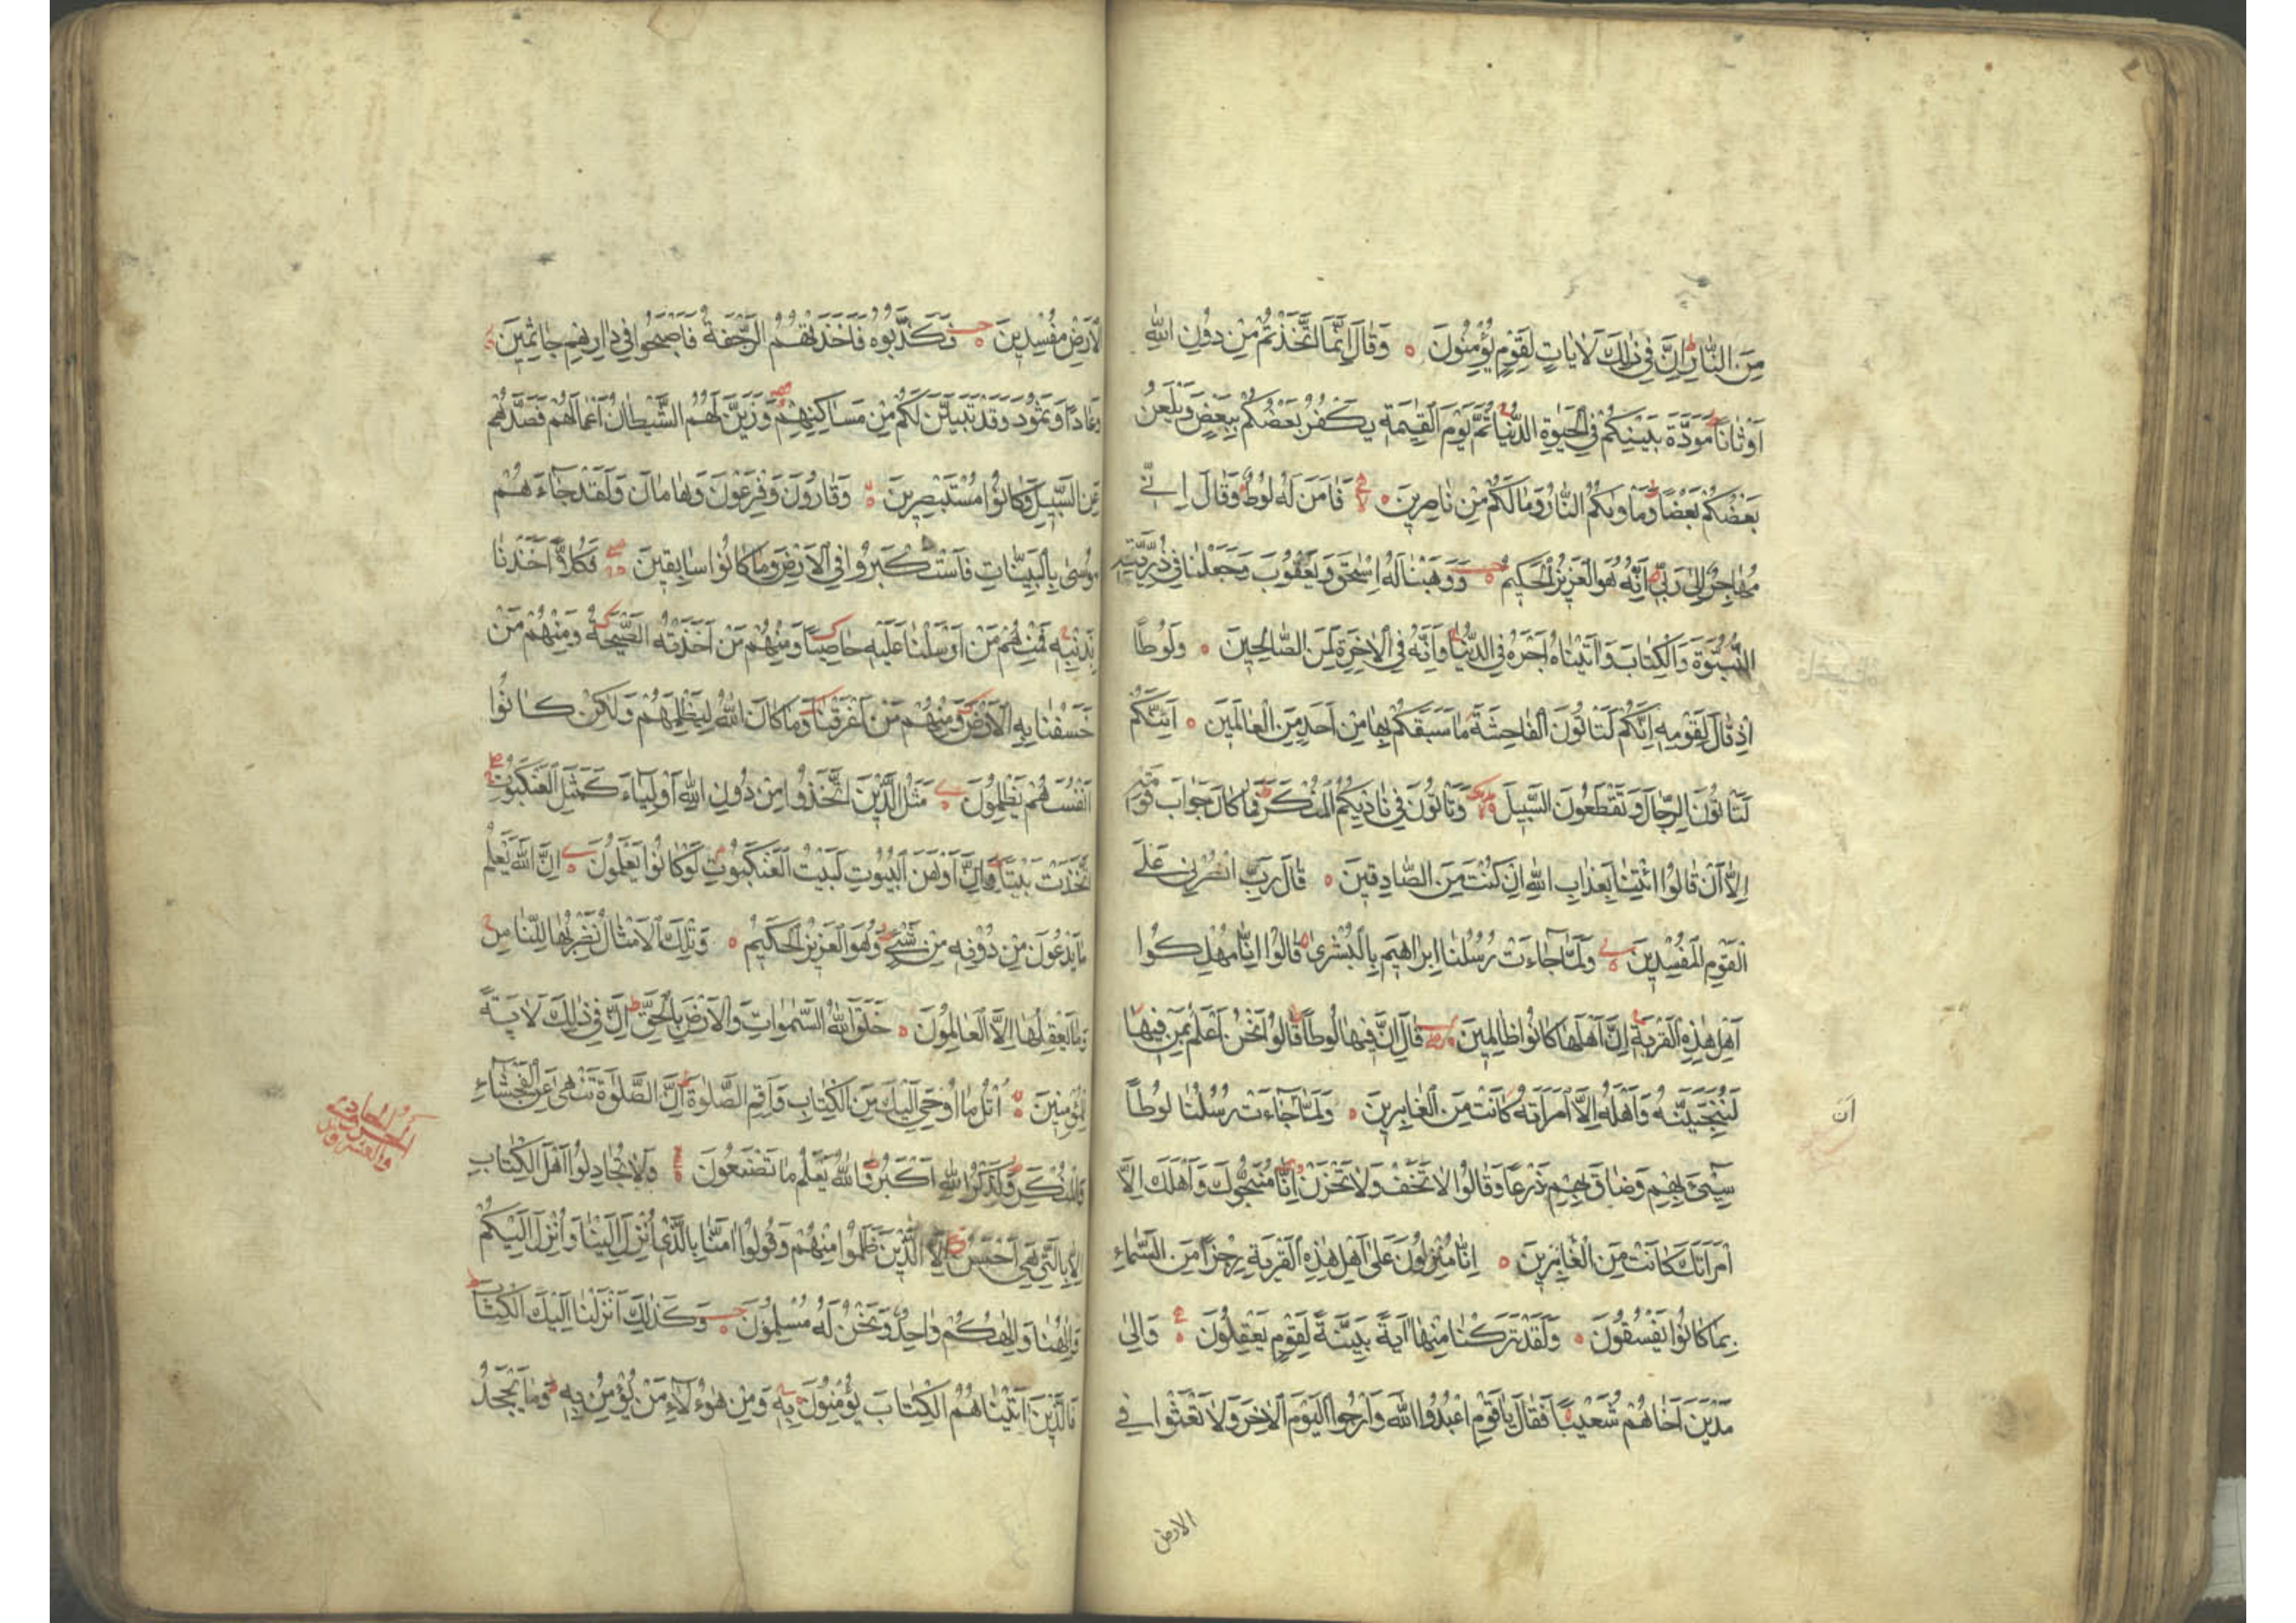 مِنَ النَّارِ اِنَّ فِي ذٰلِكَ لَاٰيَاتٍ لِقَوْمٍ يُؤْمِنُونَ وَقَالَ اِنَّمَا اتَّخَذْتُمْ مِنْ دُونِ اللّٰهِ
اَوْثَانًا مَوَدَّةَ بَيْنِكُمْ فِي الْحَيٰوةِ الدُّنْيَا ثُمَّ يَوْمَ الْقِيٰمَةِ يَكْفُرُ بَعْضُكُمْ بِبَعْضٍ وَيَلْعَنُ
بَعْضُكُمْ بَعْضًا وَمَاْوٰيكُمُ النَّارُ وَمَا لَكُمْ مِنْ نَاصِرِينَ فَاٰمَنَ لَهُ لُوطٌ وَقَالَ اِنِّي
مُهَاجِرٌ اِلٰى رَبِّي اِنَّهُ هُوَ الْعَزِيزُ الْحَكِيمُ وَوَهَبْنَا لَهُ اِسْحٰقَ وَيَعْقُوبَ وَجَعَلْنَا فِي ذُرِّيَّتِهِ
النُّبُوَّةَ وَالْكِتَابَ وَاٰتَيْنَاهُ اَجْرَهُ فِي الدُّنْيَا وَاِنَّهُ فِي الْاٰخِرَةِ لَمِنَ الصَّالِحِينَ وَلُوطًا
اِذْ قَالَ لِقَوْمِهِ اِنَّكُمْ لَتَاْتُونَ الْفَاحِشَةَ مَا سَبَقَكُمْ بِهَا مِنْ اَحَدٍ مِنَ الْعَالَمِينَ اَئِنَّكُمْ
لَتَاْتُونَ الرِّجَالَ وَتَقْطَعُونَ السَّبِيلَ وَتَاْتُونَ فِي نَادِيكُمُ الْمُنْكَرَ فَمَا كَانَ جَوَابَ قَوْمِهِ
اِلَّا اَنْ قَالُوا ائْتِنَا بِعَذَابِ اللّٰهِ اِنْ كُنْتَ مِنَ الصَّادِقِينَ قَالَ رَبِّ انْصُرْنِي عَلَى
الْقَوْمِ الْمُفْسِدِينَ وَلَمَّا جَاءَتْ رُسُلُنَا اِبْرَاهِيمَ بِالْبُشْرٰى قَالُوا اِنَّا مُهْلِكُوا
اَهْلِ هٰذِهِ الْقَرْيَةِ اِنَّ اَهْلَهَا كَانُوا ظَالِمِينَ قَالَ اِنَّ فِيهَا لُوطًا قَالُوا نَحْنُ اَعْلَمُ بِمَنْ فِيهَا
لَنُنَجِّيَنَّهُ وَاَهْلَهُ اِلَّا امْرَاَتَهُ كَانَتْ مِنَ الْغَابِرِينَ وَلَمَّا جَاءَتْ رُسُلُنَا لُوطًا
اَنْ
سِيءَ بِهِمْ وَضَاقَ بِهِمْ ذَرْعًا وَقَالُوا لَا تَخَفْ وَلَا تَحْزَنْ اِنَّا مُنَجُّوكَ وَاَهْلَكَ اِلَّا
امْرَاَتَكَ كَانَتْ مِنَ الْغَابِرِينَ اِنَّا مُنْزِلُونَ عَلٰى اَهْلِ هٰذِهِ الْقَرْيَةِ رِجْزًا مِنَ السَّمَاءِ
بِمَا كَانُوا يَفْسُقُونَ وَلَقَدْ تَرَكْنَا مِنْهَا اٰيَةً بَيِّنَةً لِقَوْمٍ يَعْقِلُونَ وَاِلٰى
مَدْيَنَ اَخَاهُمْ شُعَيْبًا فَقَالَ يَا قَوْمِ اعْبُدُوا اللّٰهَ وَارْجُوا الْيَوْمَ الْاٰخِرَ وَلَا تَعْثَوْا فِي
الارض
الْاَرْضِ مُفْسِدِينَ فَكَذَّبُوهُ فَاَخَذَتْهُمُ الرَّجْفَةُ فَاَصْبَحُوا فِي دَارِهِمْ جَاثِمِينَ
وَعَادًا وَثَمُودَ وَقَدْ تَبَيَّنَ لَكُمْ مِنْ مَسَاكِنِهِمْ وَزَيَّنَ لَهُمُ الشَّيْطَانُ اَعْمَالَهُمْ فَصَدَّهُمْ
عَنِ السَّبِيلِ وَكَانُوا مُسْتَبْصِرِينَ وَقَارُونَ وَفِرْعَوْنَ وَهَامَانَ وَلَقَدْ جَاءَهُمْ
مُوسٰى بِالْبَيِّنَاتِ فَاسْتَكْبَرُوا فِي الْاَرْضِ وَمَا كَانُوا سَابِقِينَ فَكُلًّا اَخَذْنَا
بِذَنْبِهِ فَمِنْهُمْ مَنْ اَرْسَلْنَا عَلَيْهِ حَاصِبًا وَمِنْهُمْ مَنْ اَخَذَتْهُ الصَّيْحَةُ وَمِنْهُمْ مَنْ
خَسَفْنَا بِهِ الْاَرْضَ وَمِنْهُمْ مَنْ اَغْرَقْنَا وَمَا كَانَ اللّٰهُ لِيَظْلِمَهُمْ وَلٰكِنْ كَانُوا
اَنْفُسَهُمْ يَظْلِمُونَ مَثَلُ الَّذِينَ اتَّخَذُوا مِنْ دُونِ اللّٰهِ اَوْلِيَاءَ كَمَثَلِ الْعَنْكَبُوتِ
اتَّخَذَتْ بَيْتًا وَاِنَّ اَوْهَنَ الْبُيُوتِ لَبَيْتُ الْعَنْكَبُوتِ لَوْ كَانُوا يَعْلَمُونَ اِنَّ اللّٰهَ يَعْلَمُ
مَا يَدْعُونَ مِنْ دُونِهِ مِنْ شَيْءٍ وَهُوَ الْعَزِيزُ الْحَكِيمُ وَتِلْكَ الْاَمْثَالُ نَضْرِبُهَا لِلنَّاسِ
وَمَا يَعْقِلُهَا اِلَّا الْعَالِمُونَ خَلَقَ اللّٰهُ السَّمٰوَاتِ وَالْاَرْضَ بِالْحَقِّ اِنَّ فِي ذٰلِكَ لَاٰيَةً
لِلْمُؤْمِنِينَ اُتْلُ مَا اُوحِيَ اِلَيْكَ مِنَ الْكِتَابِ وَاَقِمِ الصَّلٰوةَ اِنَّ الصَّلٰوةَ تَنْهٰى عَنِ الْفَحْشَاءِ
الجزو الحادي
والعشرون
وَالْمُنْكَرِ وَلَذِكْرُ اللّٰهِ اَكْبَرُ وَاللّٰهُ يَعْلَمُ مَا تَصْنَعُونَ وَلَا تُجَادِلُوا اَهْلَ الْكِتَابِ
اِلَّا بِالَّتِي هِيَ اَحْسَنُ اِلَّا الَّذِينَ ظَلَمُوا مِنْهُمْ وَقُولُوا اٰمَنَّا بِالَّذِي اُنْزِلَ اِلَيْنَا وَاُنْزِلَ اِلَيْكُمْ
وَاِلٰهُنَا وَاِلٰهُكُمْ وَاحِدٌ وَنَحْنُ لَهُ مُسْلِمُونَ وَكَذٰلِكَ اَنْزَلْنَا اِلَيْكَ الْكِتَابَ
فَالَّذِينَ اٰتَيْنَاهُمُ الْكِتَابَ يُؤْمِنُونَ بِهِ وَمِنْ هٰؤُلَاءِ مَنْ يُؤْمِنُ بِهِ وَمَا يَجْحَدُ